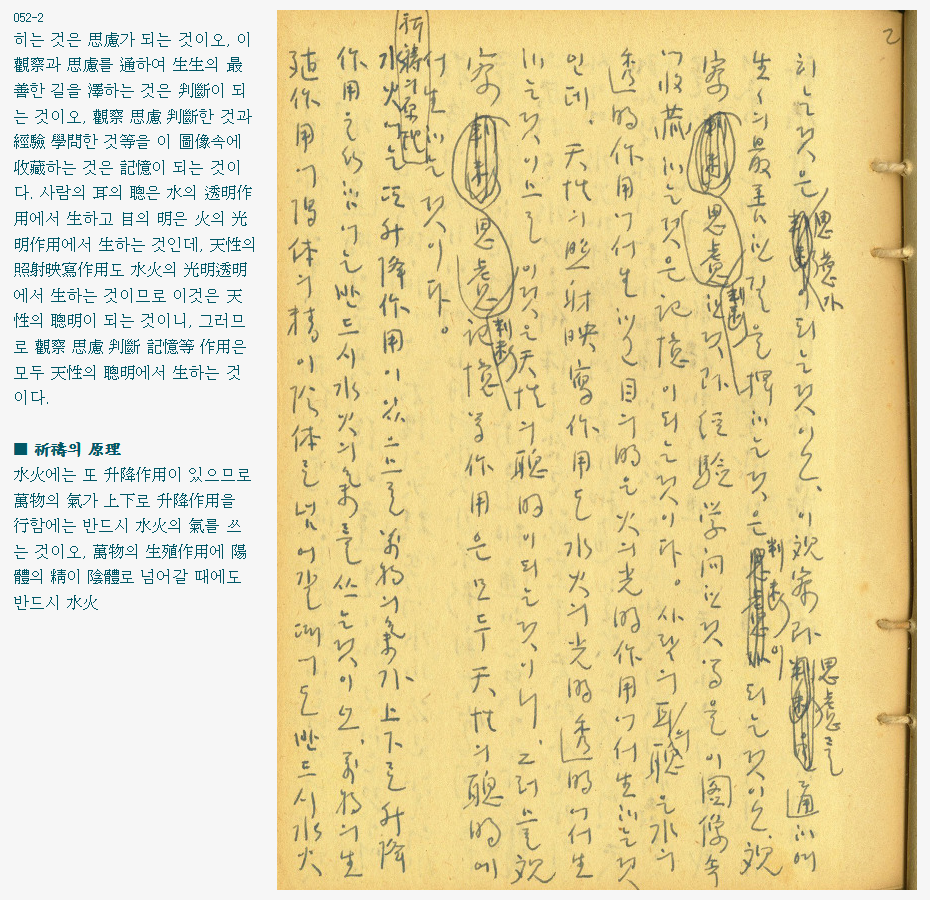 052-2
히는 것은 思慮가 되는 것이오, 이
觀察과 思慮를 通하여 生生의 最
善한 길을 澤하는 것은 判斷이 되
는 것이오, 觀察 思慮 判斷한 것과
經驗 學問한 것等을 이 圖像속에
收藏하는 것은 記憶이 되는 것이
다. 사람의 耳의 聰은 水의 透明作
用에서 生하고 目의 明은 火의 光
明作用에서 生하는 것인데, 天性의
照射映寫作用도 水火의 光明透明
에서 生하는 것이므로 이것은 天
性의 聰明이 되는 것이니, 그러므
로 觀察 思慮 判斷 記憶等 作用은
모두 天性의 聰明에서 生하는 것
이다.
■ 祈禱의 原理
水火에는 또 升降作用이 있으므로
萬物의 氣가 上下로 升降作用을
行함에는 반드시 水火의 氣를 쓰
는 것이오, 萬物의 生殖作用에 陽
體의 精이 陰體로 넘어갈 때에도
반드시 水火
2
히는것은思慮가되는것이오、이观察과思慮를通하여
生々의最善한길을擇하는것은判斷이되는것이오、观
察思慮判斷한것과経驗学问한것等을이图像속
에收藏하는것은記憶이되는것이다。사람의耳의聰은水의
透明作用에서生하고目의明은火의光明作用에서生하는것
인데、天性의照射映寫作用도水火의光明透明에서生
하는것이므로이것은天性의聰明이되는것이니、그러므로观
察思慮判斷記憶等作用은모두天性의聰明에
서生하는것이다。
祈禱의原理
水火에는또升降作用이있으므로萬物의氣가上下로升降
作用을行함에는반드시水火의氣를쓰는것이오、萬物의生
殖作用에陽体의精이陰体로넘어갈때에도반드시水火